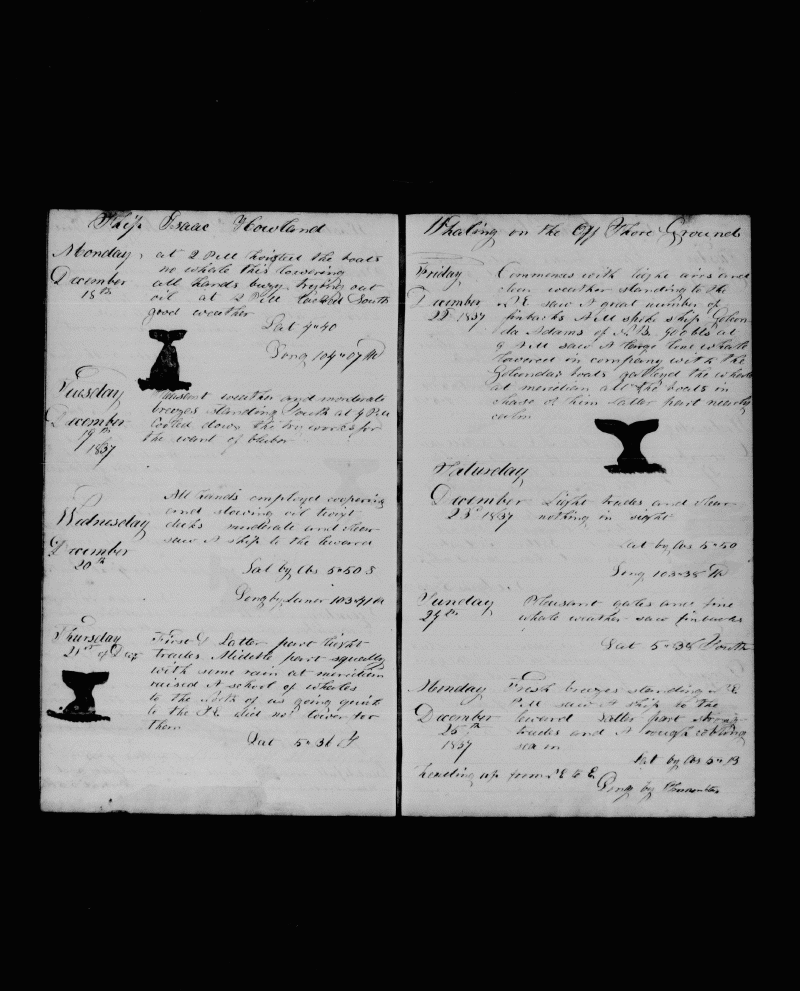 Ship Isaac Howland
Monday
December
18th
at 2 P.M. hoisted the boats
no whale this lowering
all hands busy trying out
oil at 2 P.M. tacked South
good weather
Lat 4"40
Long 104"07 W
Tuesday
December
19th
1837
Pleasant weather and moderate
breezes standing South at 9 P.M.
cooled down the try works for
the want of blubber
Wednesday
December
20th
All hands employed coopering
and stowing oil twixt
decks moderate and clear
saw A ship to the leward
Lat by Obs 5"50 S
Long by Lunar 103"41 W
Thursday
21st of Dec
First & Latter part light
trades Middle part squally
with some rain at meridian
raised A school of whales
to the North of us going quick
to the did not lower for
them
Lat 5"36 S
Whaling on the Off Shore Ground
Friday
December
22 1837
Commences with light airs and
clear weather standing to the
N.E. saw A great number of
finbacks A.M. spoke ship
Adams of N.B. at
9 A.M. saw A large lone whale
lowered in company with the
boats gallyed the whale
at meridian all the boats in
chase of him latter part nearly
calm
Saturday
December
23d 1837
Light trades and clear
nothing in sight
Lat by Obs 5"50
Long 103"38 W
Sunday
24th
Pleasant gales and fine
whale weather saw finbacks
Lat 5"36 South
Monday
December
25th
1837
Fresh breezes standing N.E.
P.M. saw A ship to the
leward latter part strong
trades and A rough
sea on
Lat by Obs 5"13
heading up from to E.
Long by